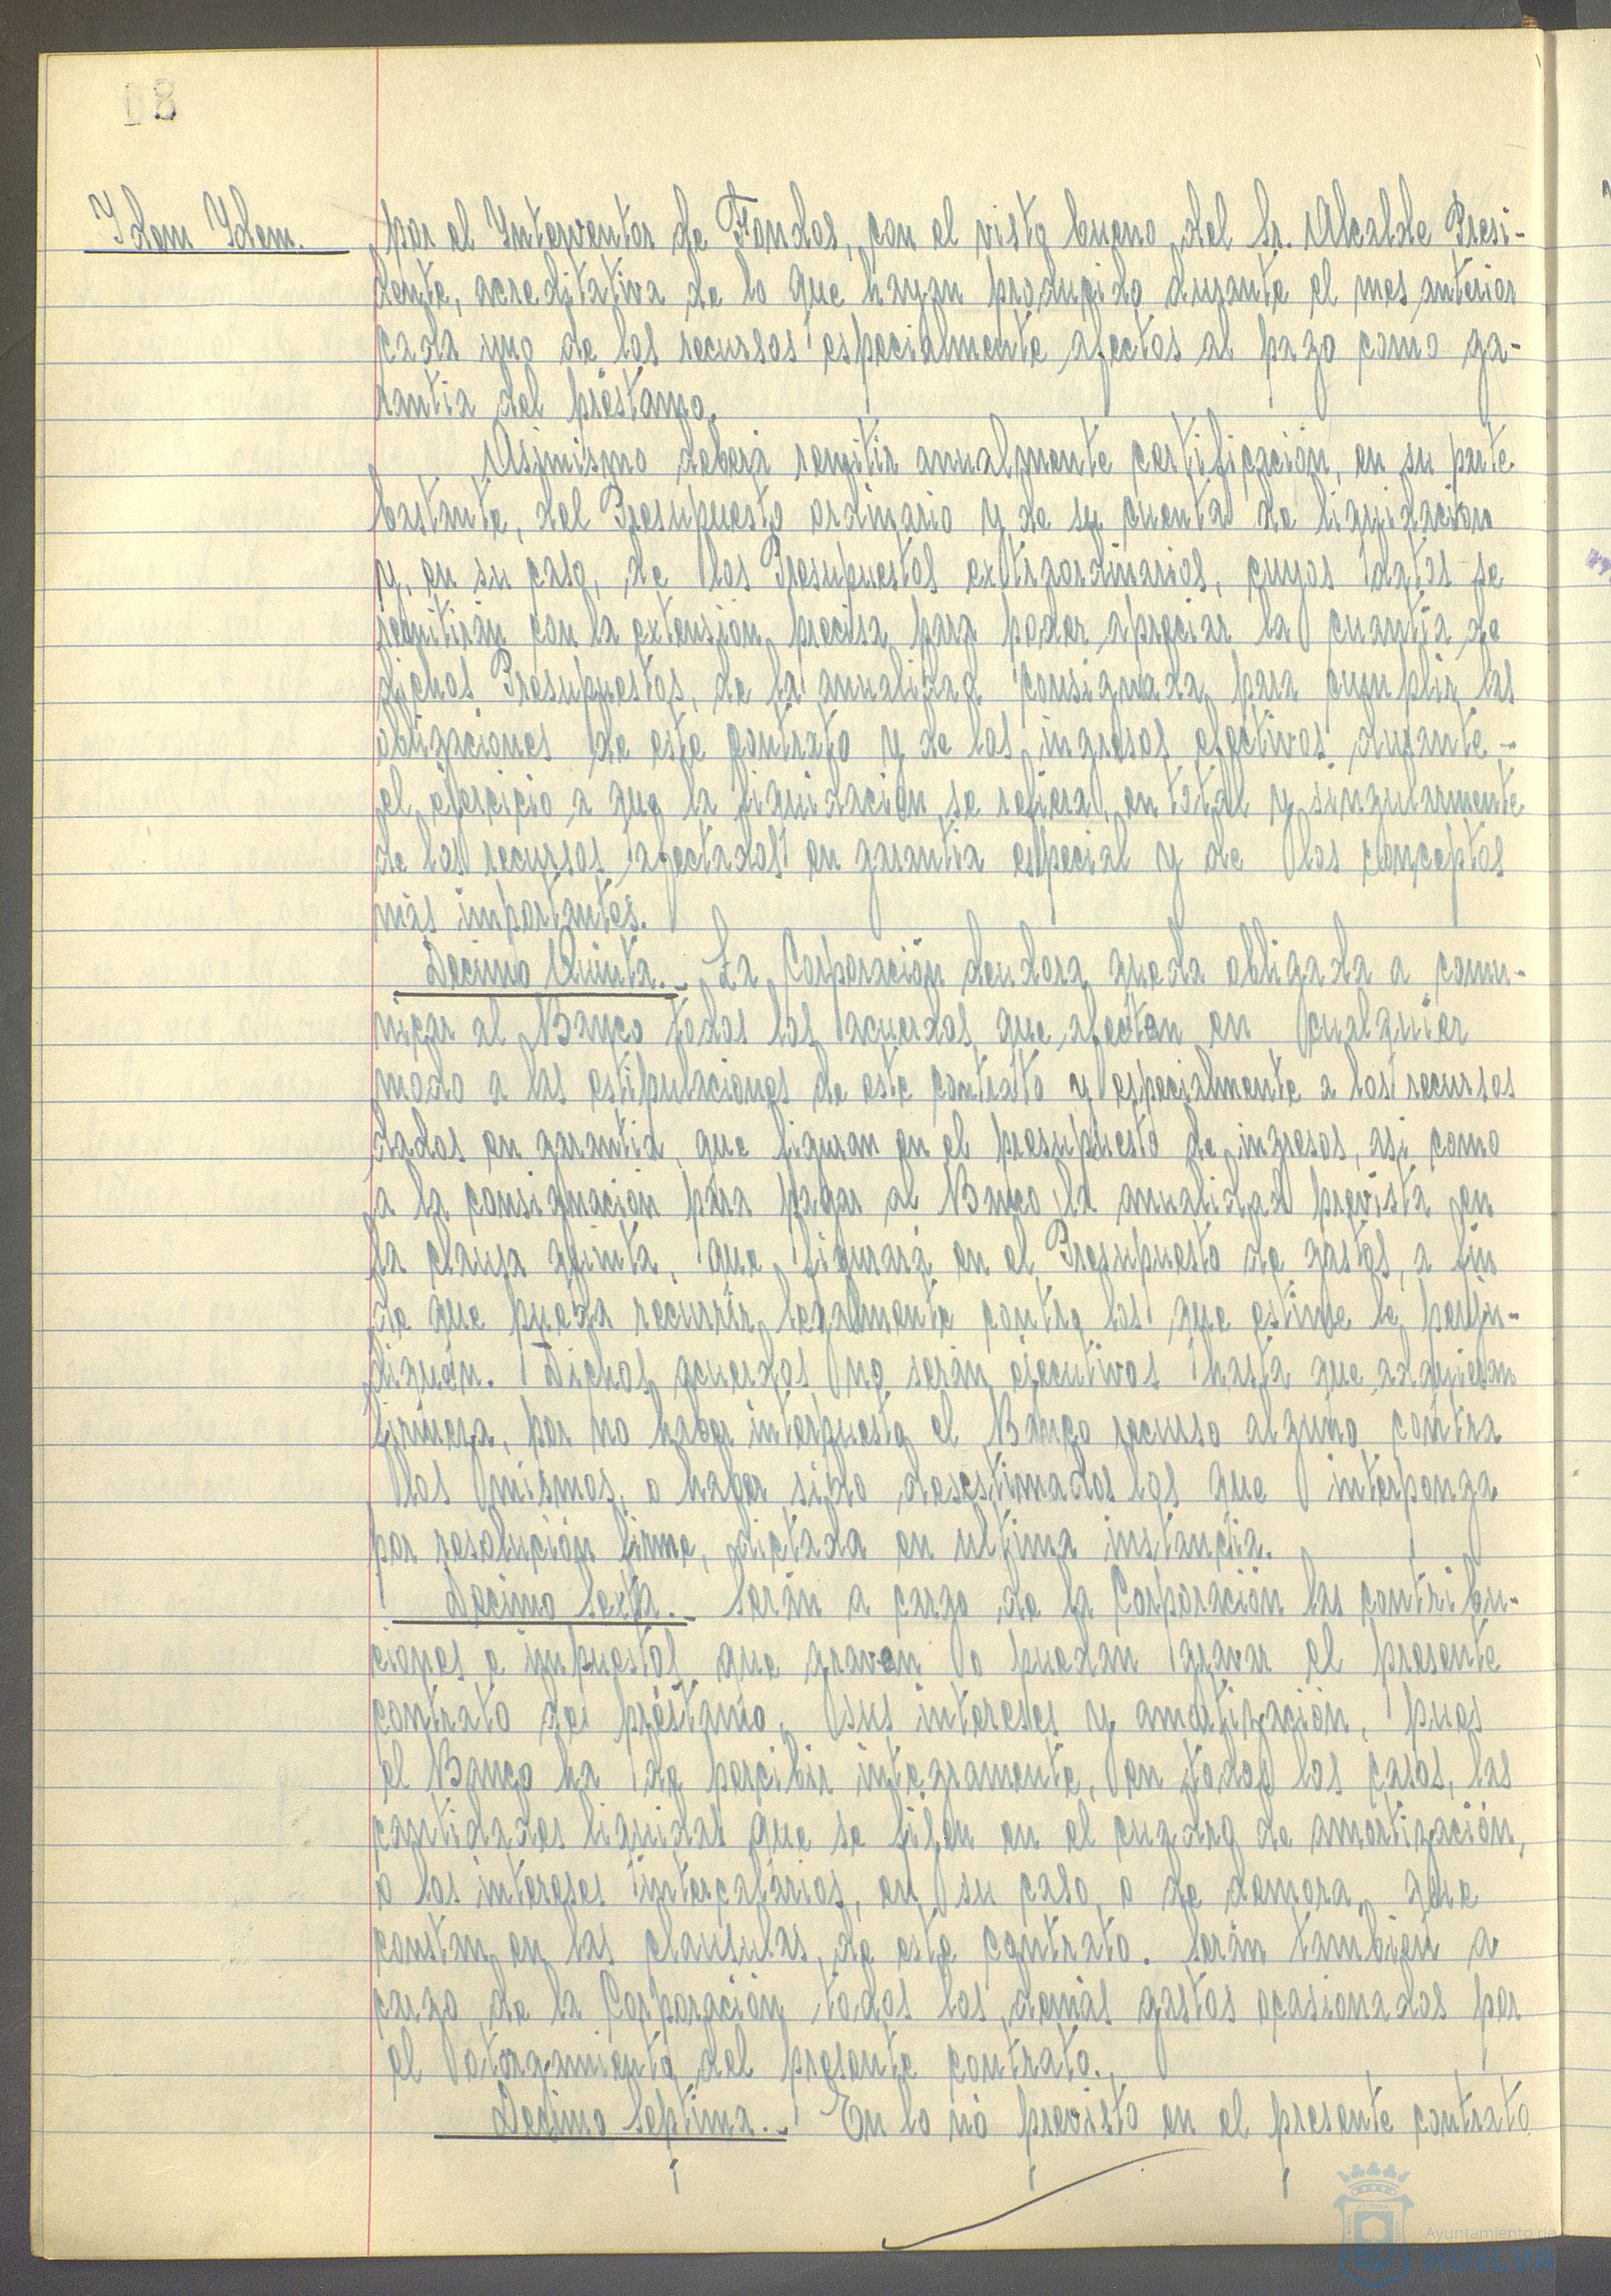 08
Idem Idem.
por el Interventor de Fondos, con el visto bueno del Sr. Alcalde Presi-
dente, acreditativa de lo que hayan producido durante el mes anterior
cada uno de los recursos especialmente afectos al pago como ga-
rantia del préstamo.
Asimismo deberá remitir anualmente certificación, en su parte
bastante, del Presupuesto ordinario y de su cuenta de liquidación
y, en su caso, de los Presupuestos extraordinarios, cuyos datos se
remitirán con la extensión precisa para poder apreciar la cuantía de
dichos Presupuestos, de la anualidad consignada para cumplir las
obligaciones de este contrato y de los ingresos efectivos durante
el ejercicio a que la liquidación se refiera, en total y singularmente
de los recursos afectados en garantia especial y de los conceptos
más importantes.
Décimo Quinta.- La Corporación deudora queda obligada a comu-
nicar al Banco todos los acuerdos que afecten en cualquier
modo a las estipulaciones de este contrato y especialmente a los recursos
dados en garantia, que figuran en el presupuesto de ingresos, asi como
a la consignación para pagar al Banco la anualidad prevista en
la clausa quinta, que figurará en el Presupuesto de gastos, a fin
de que pueda recurrir legalmente contra los que estime le perju-
diquen. Dichos acuerdos no serán ejecutivos hasta que adquieran
firmeza, por no haber interpuesto el Banco recurso alguno contra
los mismos, o haber sido desestimados los que interponga
por resolución firme, dictada en ultima instancia.
Décimo Sexta.- Serán a cargo de la Corporación las contribu-
ciones e impuestos que graven o puedan gravar el presente
contrato de préstamo, sus intereses y amortización, pues
el Banco ha de percibir integramente, en todos los casos, las
cantidades liquidas que se fijen en el cuadro de amortización,
o los intereses intercalarios, en su caso, o de demora, que
constan en las clausulas de este contrato. Serán también a
cargo de la Corporación todos los demás gastos ocasionados por
el otorgamiento del presente contrato.
Décimo Séptima.- En lo no previsto en el presente contrato
Ayuntamiento de
HUELVA